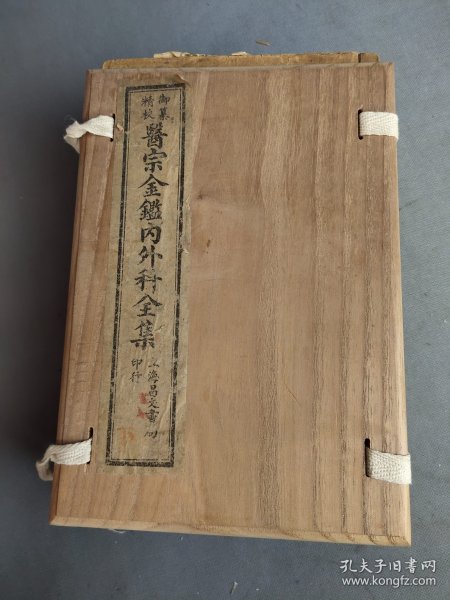 御纂
精校
醫宗金鑑內外科全集
上海昌文書局
印行
孔夫子旧书网
www.kongfz.com